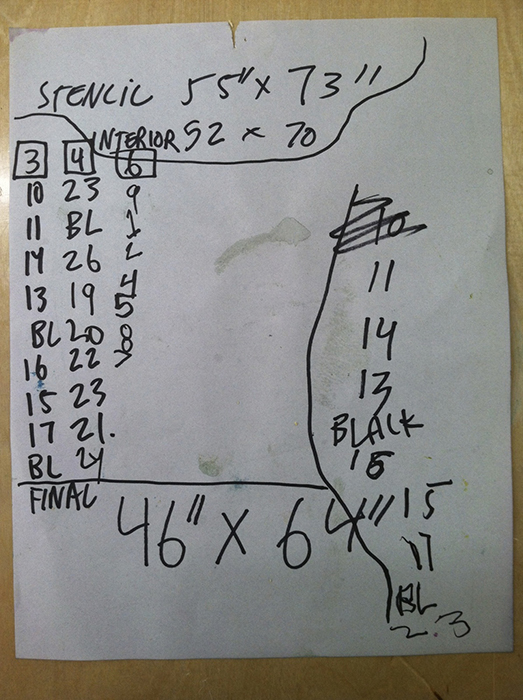 STENCIL 55" x 73"
INTERIOR 52 x 70
3 4 6
10 23 9
11 BL 1
14 26 2
13 19 4
BL 20 5
16 22 8
15 23 7
17 21.
BL 24
FINAL
46" x 64"
11
14
13
BLACK
15
17
BL
2.3